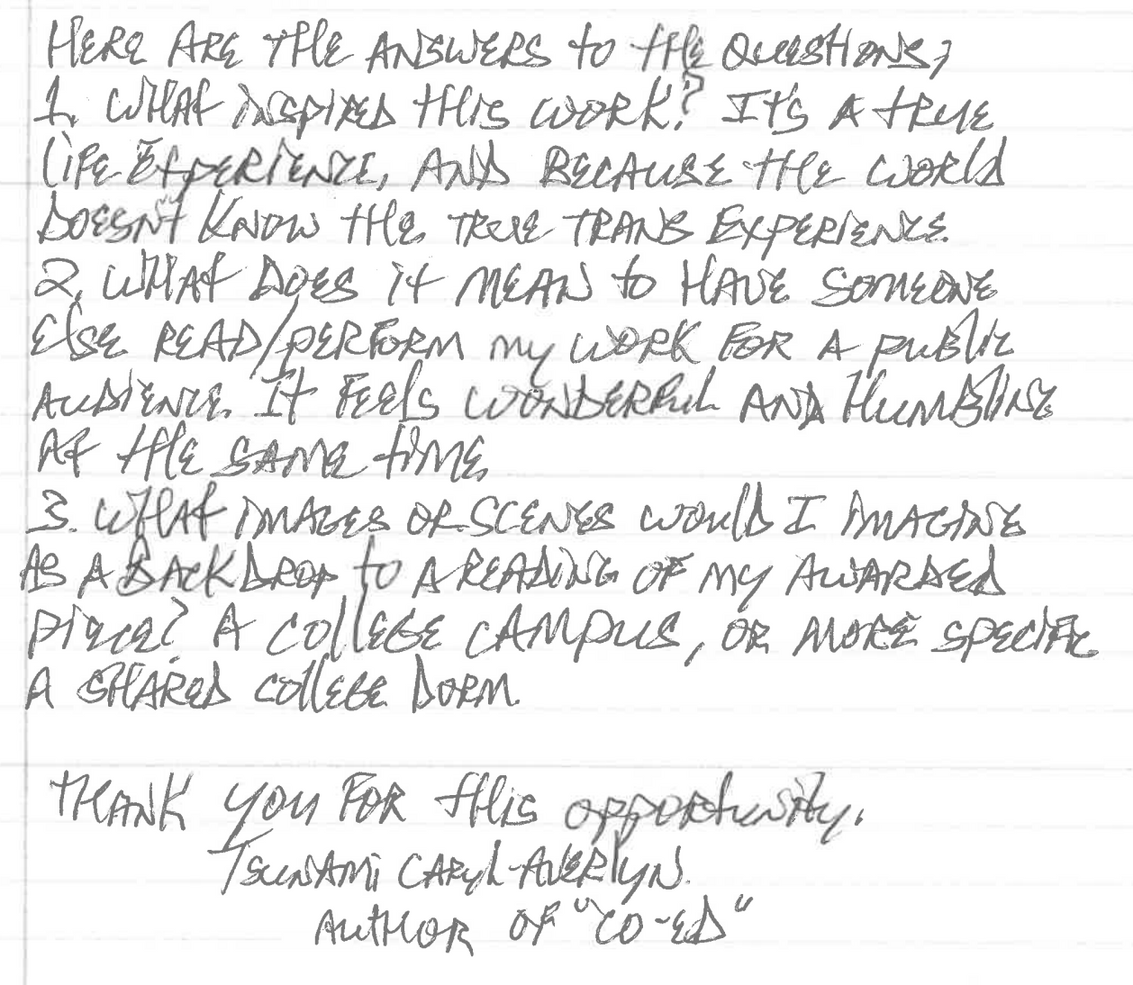 HERE ARE THE ANSWERS to tHE QUESTIONS,
1. WHAT INSPIRED tHis WORK? It's A tRUE
LiFE EXPERIENCE, AND BECAUSE tHE WORLD
DOESN't KNOW tHE TRUE TRANS EXPERIENCE.
2. WHAt DOES it MEAN to HAVE SOMEONE
ElsE READ/PERFORM my WORK FOR A PUBLIC
AUDIENCE. It FEELS WONDERFUL AND HUMBLING
At tHE SAME tIME.
3. WHAt iMAGES OR SCENES WOULD I IMAGINE
AS A BACKDROP to A READING OF MY AWARDED
PIECE? A COLLEGE CAMPUS, OR MORE SPECIFIC
A SHARED COLLEGE DORM.
tHANK you FOR tHis opportunity.
TSUNAMi CARyL-AVERlyN.
AUtHOR OF "CO-ED"